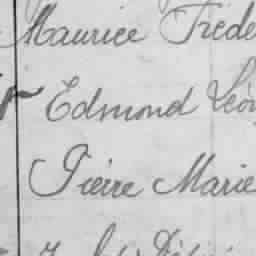 Maurice Fréde
Edmond Léon
Pierre Marie